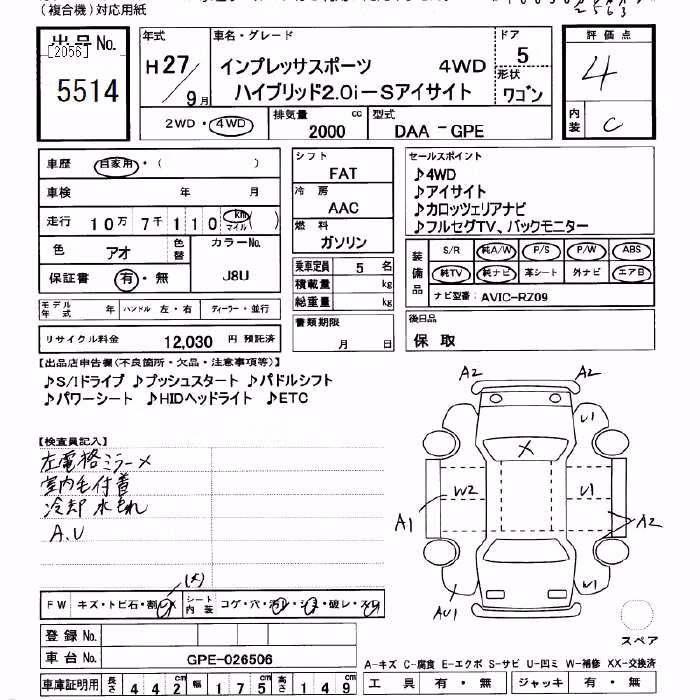 (複合機)対応用紙
2563
出品No.
[2056]
5514
年式
H27/9月
車名・グレード
インプレッサスポーツ 4WD
ハイブリッド2.0i-Sアイサイト
ドア
5
形状
ワゴン
2WD・4WD
排気量
2000
cc
型式
DAA-GPE
評価点
4
内装
C
車歴
自家用・( )
車検 年 月
走行 10万7千110 km マイル ( )
色 アオ 色替
カラーNo.
J8U
保証書 有・無
モデル年式 年 ハンドル 左・右 ディーラー・並行
リサイクル料金 12,030 円 預託済
シフト
FAT
冷房
AAC
燃料
ガソリン
乗車定員 5 名
積載量 kg
総重量 kg
書類期限
月 日
セールスポイント
♪4WD
♪アイサイト
♪カロッツェリアナビ
♪フルセグTV、バックモニター
装備品
S/R 純A/W P/S P/W ABS
純TV 純ナビ 革シート 外ナビ エアB
ナビ型番: AVIC-RZ09
後日品
保 取
【出品店申告欄(不良箇所・欠品・注意事項等)】
♪S/Iドライブ ♪プッシュスタート ♪パドルシフト
♪パワーシート ♪HIDヘッドライト ♪ETC
【検査員記入】
左電格ミラーメ
室内毛付着
冷却水もれ
A.U
(メ)
FW キズ・トビ石・割・X
シート内装 コゲ・穴・汚レ・シミ・破レ・スレ
登録No.
車台No. GPE-026506
車庫証明用 長さ 442cm 幅 175cm 高さ 149cm
A2 A2
U1
X
W2 U1
A1 A2
AU1
スペア
A-キズ C-腐食 E-エクボ S-サビ U-凹ミ W-補修 XX-交換済
工具 有・無 ジャッキ 有・無